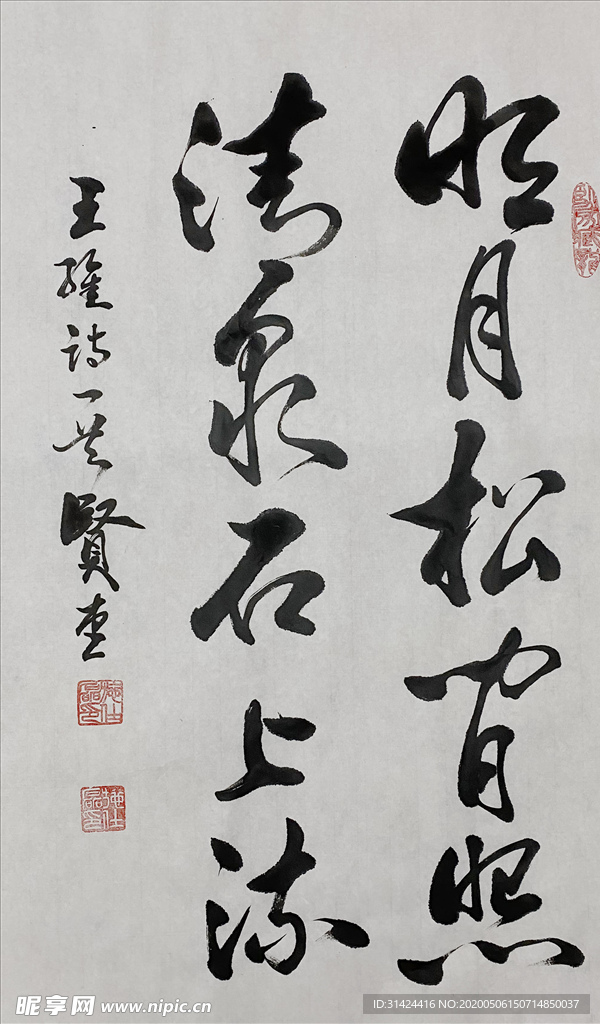 明月松间照
清泉石上流
王维诗一首
昵享网 www.nipic.cn
ID:31424416 NO:20200506150714850037